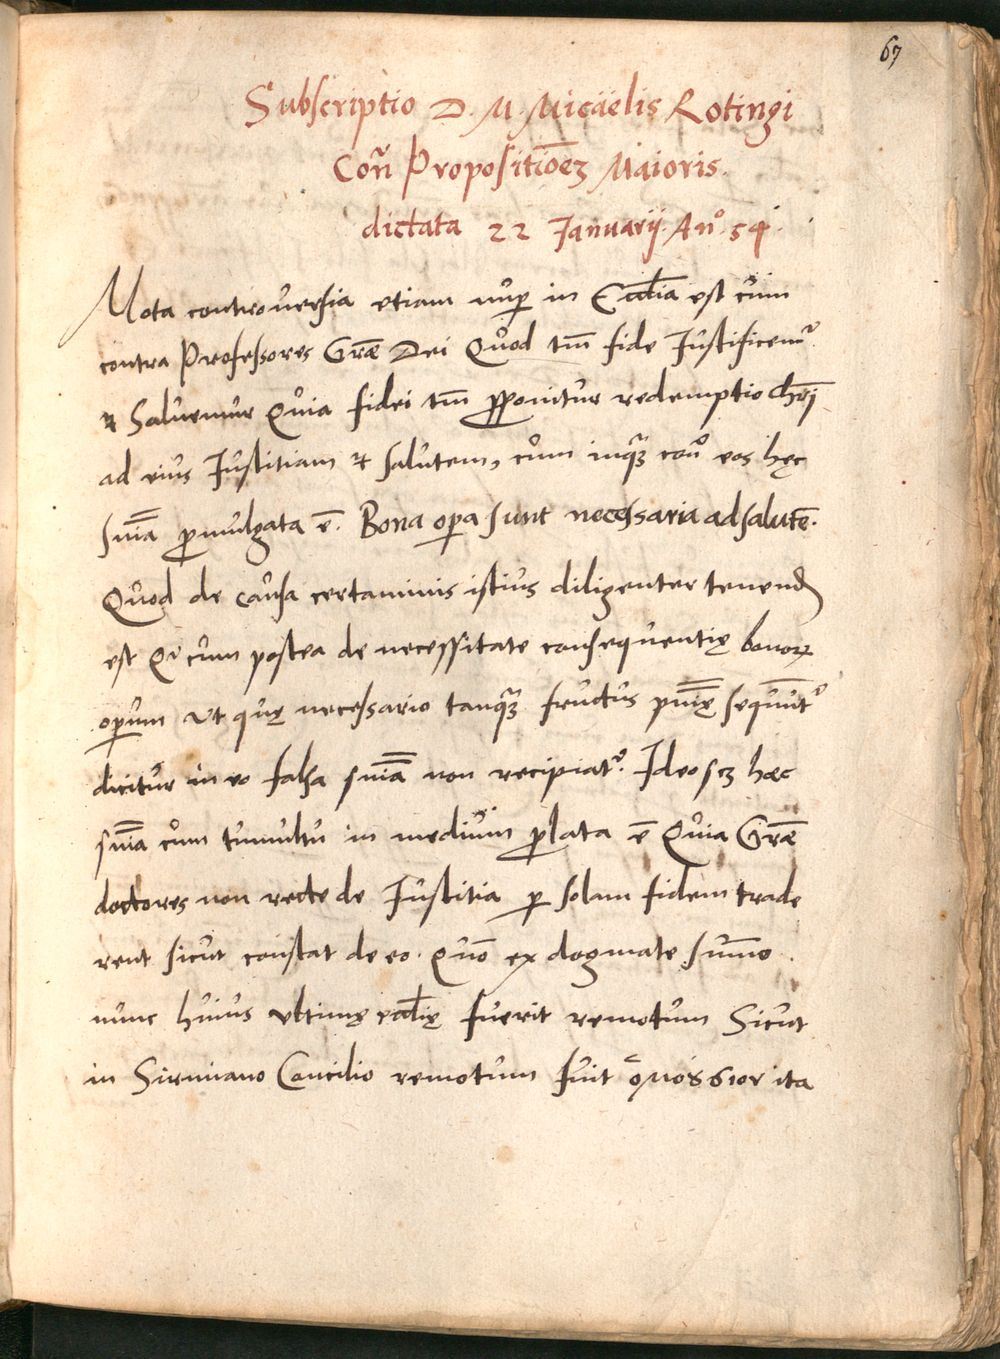 67
Subscriptio D. M. Micaëlis Rotingi
Con̄ Propositiōeʒ Maioris.
dictata 22 Januarij. Anº. 54.
Mota controversia etiam nup in Eccl̄ia est cùm
contra Professores Grāe Dei Qùod tm̄ fide Justificemr̉.
et Salvemur Qùia fidei tm̄ pponitur redemptio Chrī
ad eius Justitiam et salutem, cùm inqʒ con̉ eos hęc
sn̄ia pmulgata ē. Bona opa sunt necessaria ad salutē.
Quod de causa certaminis istius diligenter tenend
est Qͥ cum postea de necessitate consequentię bonoꝝ
opum ut quę necessario tanqʒ fructus pn̄ię sequūtr̉
dicitur in eo falsa sn̄ia non recipiatr̉. Ideo scʒ hæc
sn̄ia cùm tumultu in medium plata ē Qùia Grāe
doctores non recte de Justitia p solam fidem trade
rent sicut constat de eo. Quō ex dogmate sum̄o
nunc huius ultimę ecclię fuerit remotum Sicut
in Sirmiano Concilio remotum fuit ὁμοούσιον ita